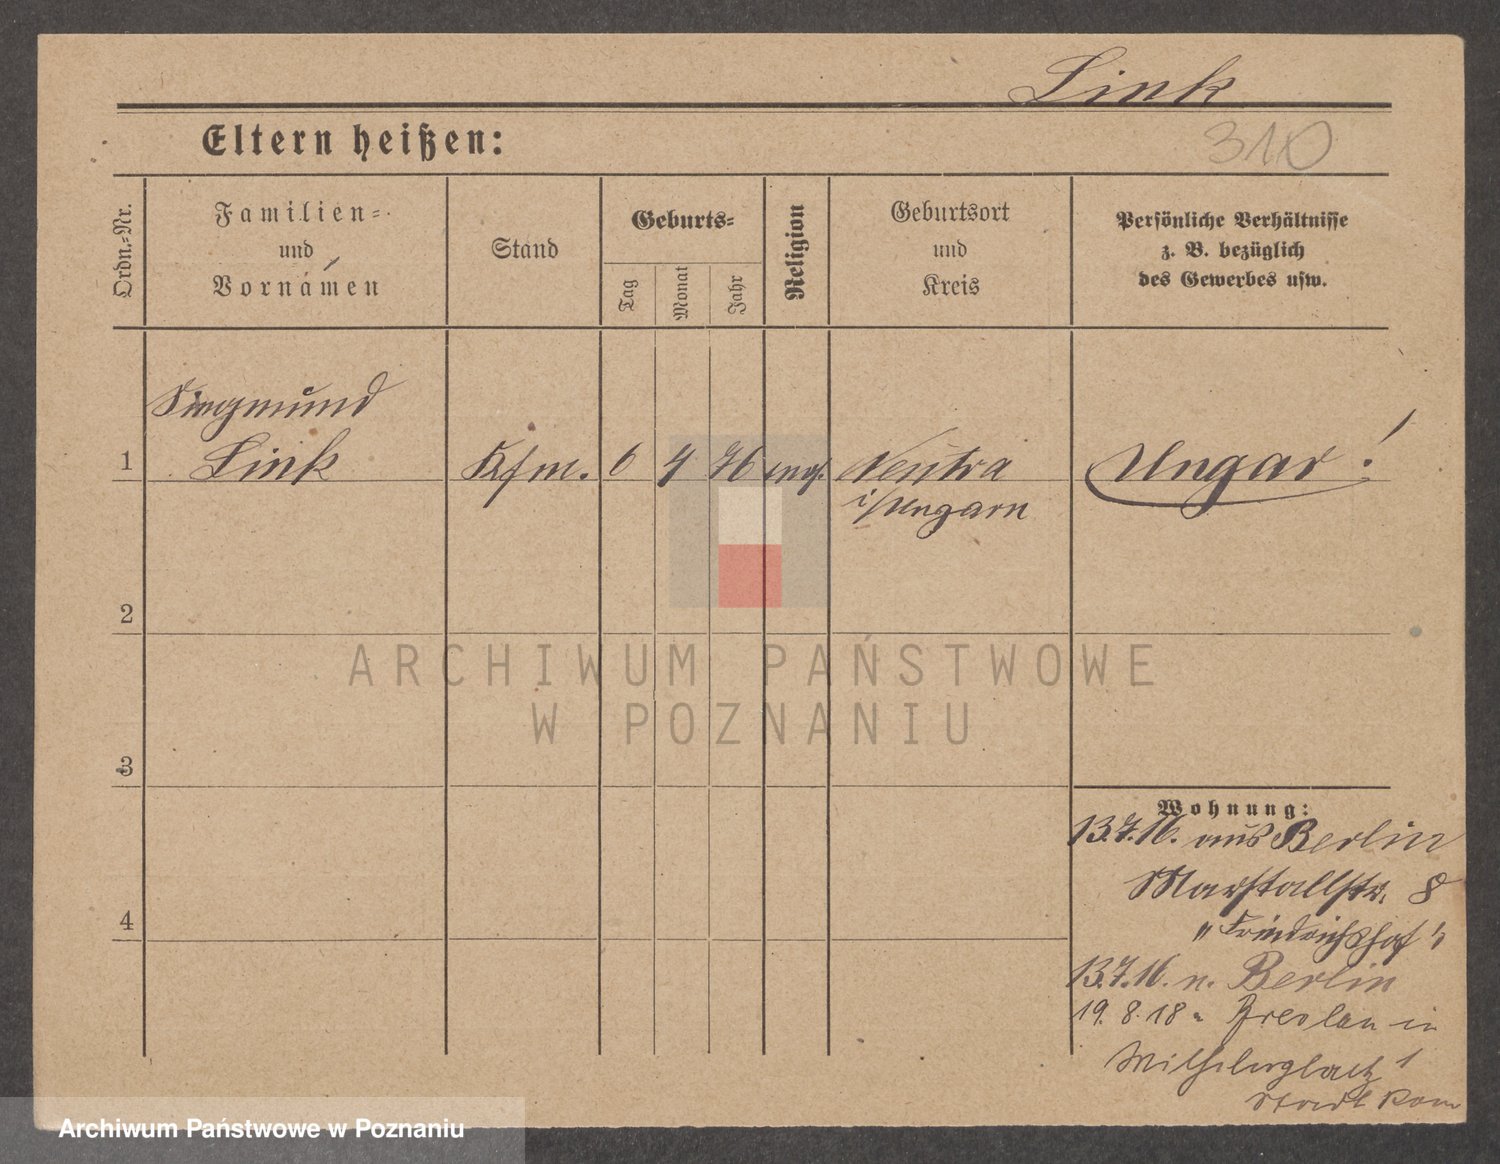 Link
310
Eltern heißen:
Ordn.-Nr.
Familien-
und
Vornamen
Stand
Geburts-
Tag
Monat
Jahr
Religion
Geburtsort
und
Kreis
Persönliche Verhältnisse
z. B. bezüglich
des Gewerbes usw.
Siegmund
1 Link Kfm. 6 4 76 mos. Neutra Ungar!
i/Ungarn
2
ARCHIWUM PAŃSTWOWE
W POZNANIU
3
Wohnung:
13.7.16. aus Berlin
Marstallstr. 8
"Friedrichshof"
4
13.7.16. n. Berlin
19. 8. 18 Breslau in
Wilhelmplatz 1
Stadt Rom
Archiwum Państwowe w Poznaniu